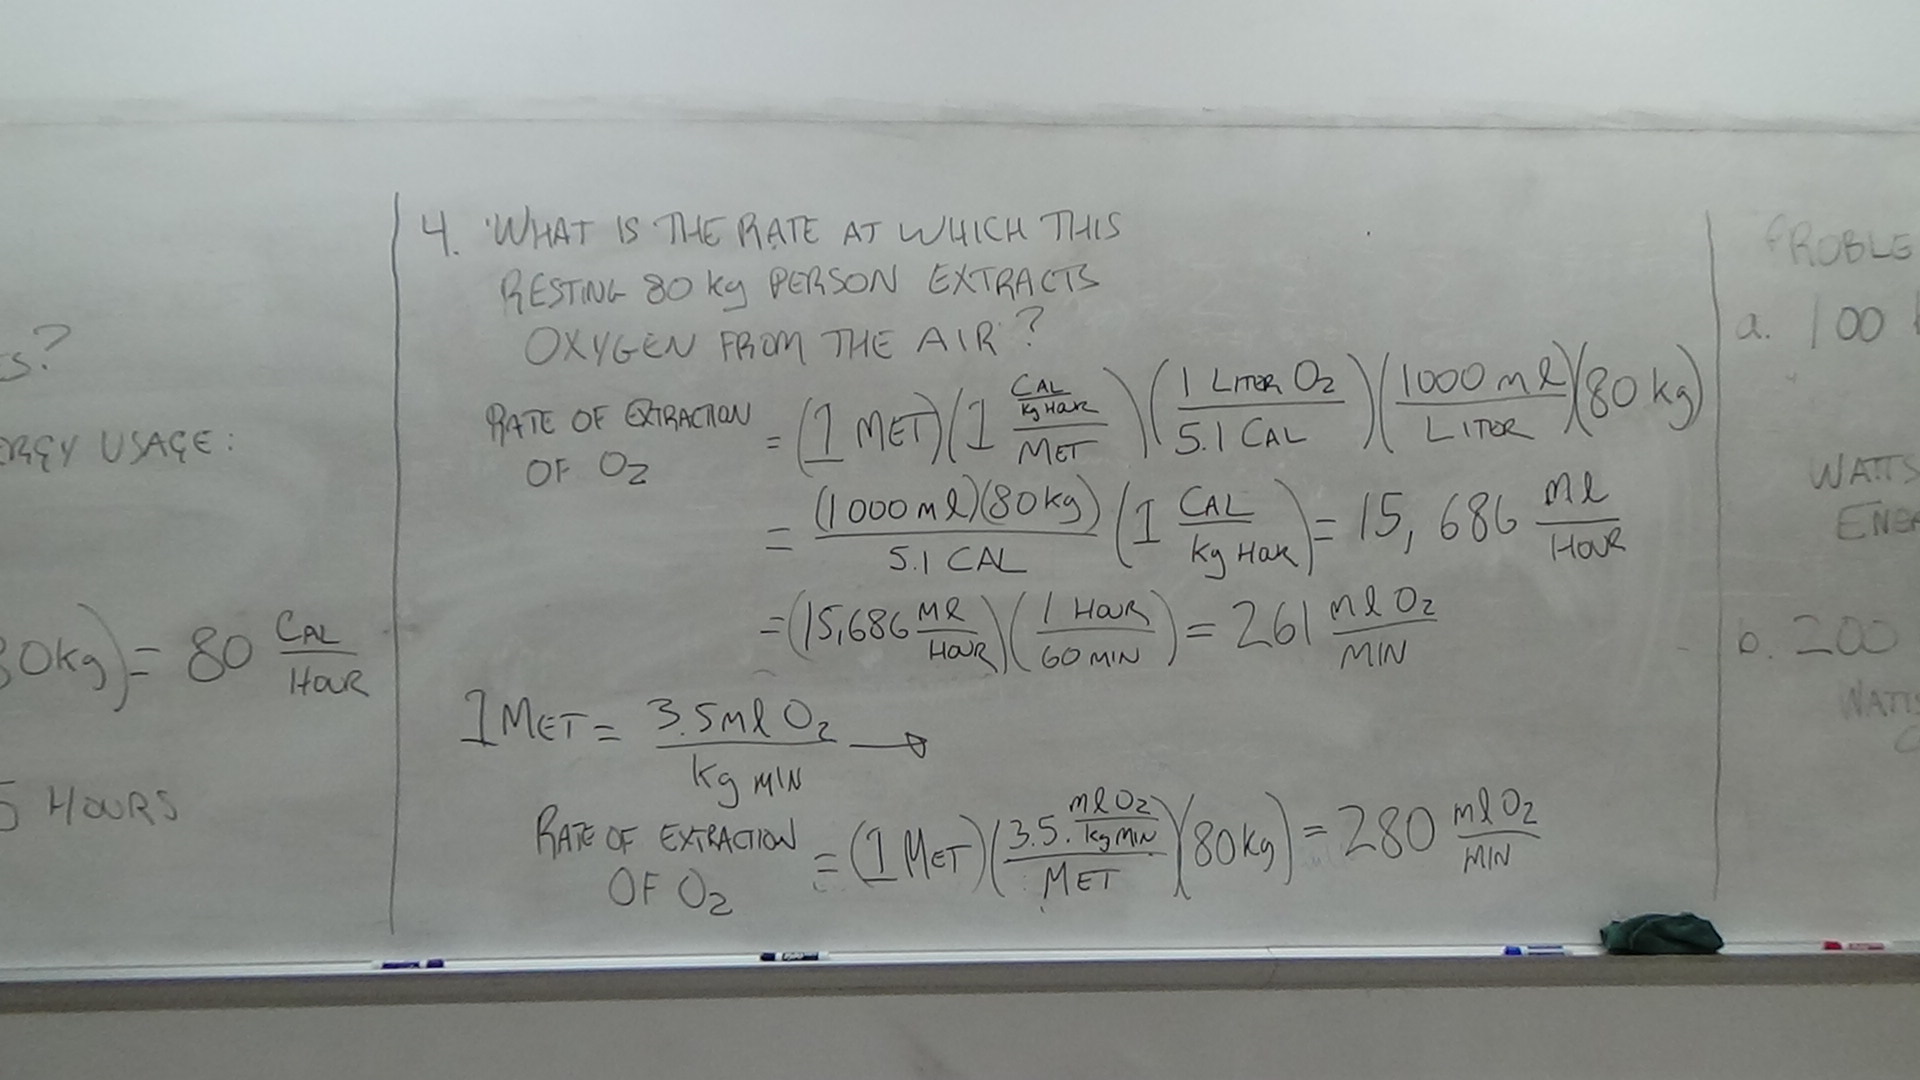 s?
ERGY USAGE:
80kg) = 80 CAL / HOUR
5 HOURS
4. WHAT IS THE RATE AT WHICH THIS
RESTING 80 kg PERSON EXTRACTS
OXYGEN FROM THE AIR?
RATE OF EXTRACTION OF O2 = (1 MET)(1 CAL / kg HOUR / MET)(1 LITER O2 / 5.1 CAL)(1000 ml / LITER)(80 kg)
= (1000 ml)(80 kg) / 5.1 CAL (1 CAL / kg HOUR) = 15,686 ml / HOUR
= (15,686 ml / HOUR)(1 HOUR / 60 MIN) = 261 ml O2 / MIN
1 MET = 3.5 ml O2 / kg MIN →
RATE OF EXTRACTION OF O2 = (1 MET)(3.5 . ml O2 / kg MIN / MET)(80 kg) = 280 ml O2 / MIN
PROBLE
a. 100
WATTS
ENE
b. 200
WATTS